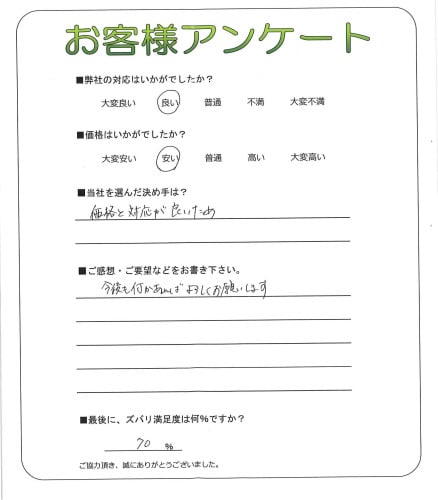 お客様アンケート
■弊社の対応はいかがでしたか？
大変良い 良い 普通 不満 大変不満
■価格はいかがでしたか？
大変安い 安い 普通 高い 大変高い
■当社を選んだ決め手は？
価格と対応が良いため
■ご感想・ご要望などをお書き下さい。
今後も何かあればよろしくお願いします
■最後に、ズバリ満足度は何％ですか？
70 ％
ご協力頂き、誠にありがとうございました。